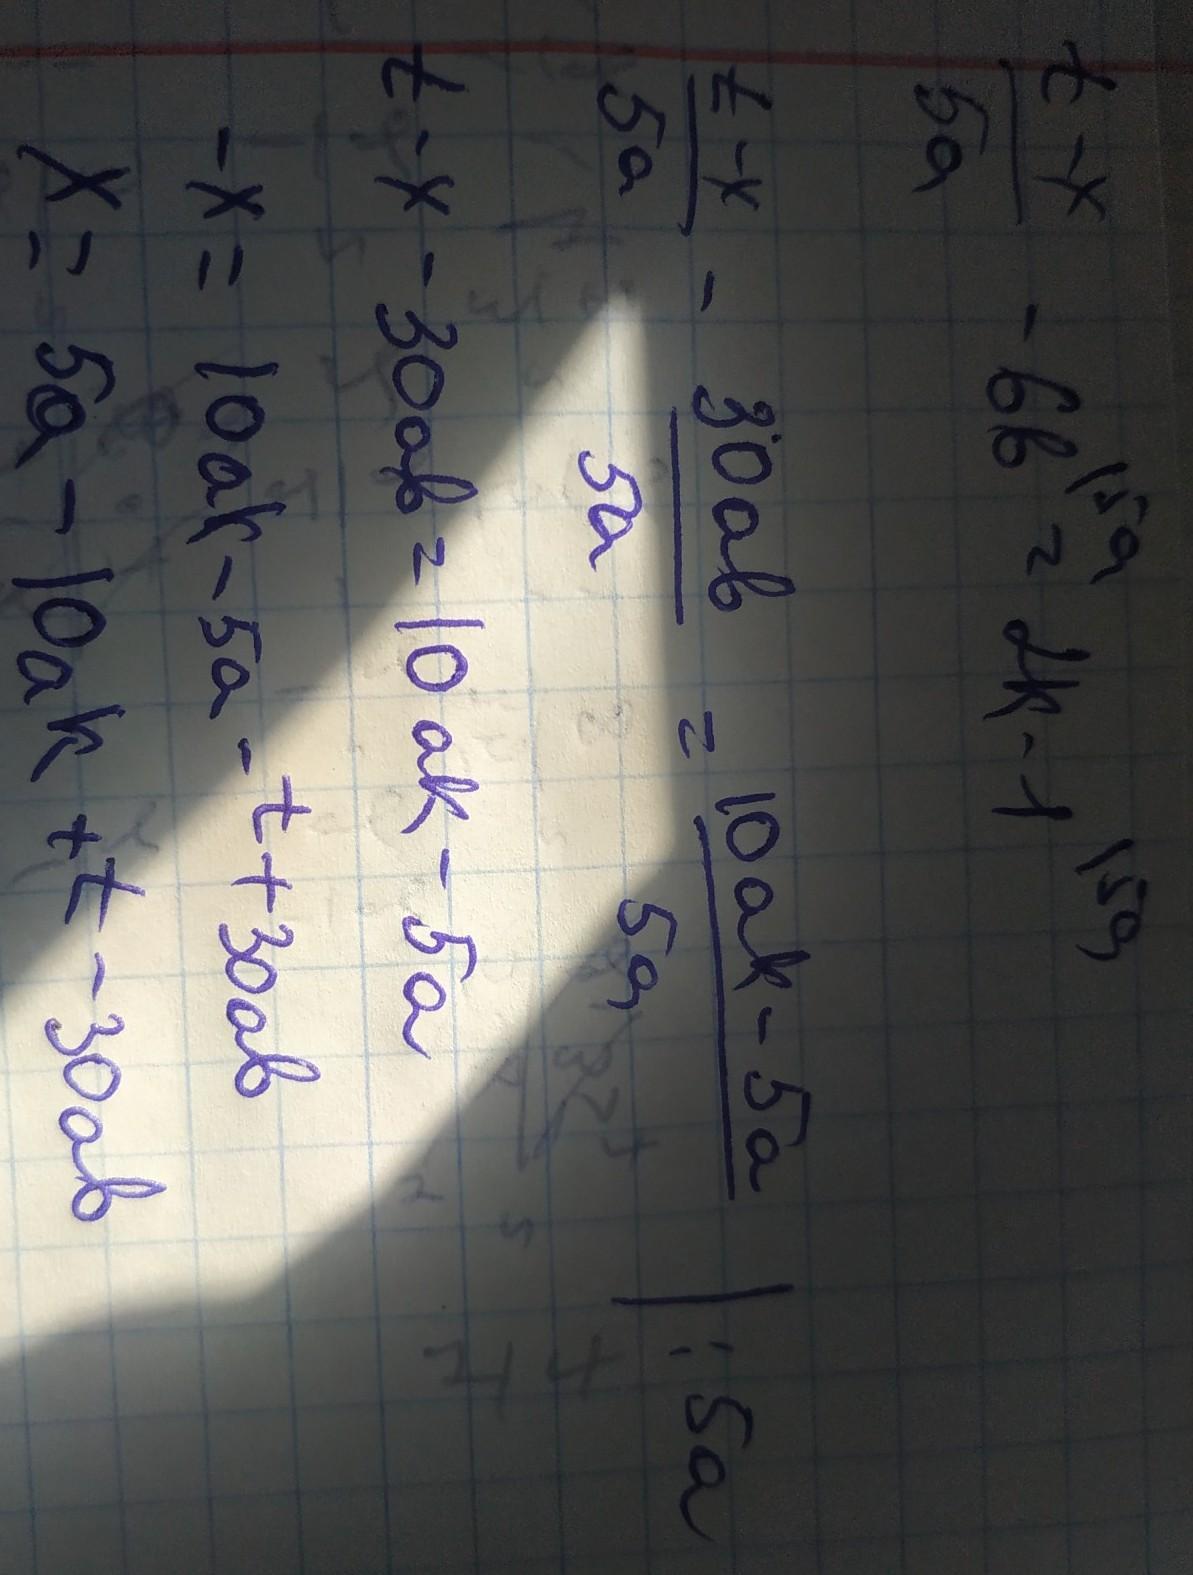 t-x/5a - 6b = 2k-1 |5a |5a
t-x/5a - 30ab/5a = 10ak-5a/5a | : 5a
t-x-30ab=10ak-5a
-x=10ak-5a-t+30ab
x=5a-10ak+t-30ab